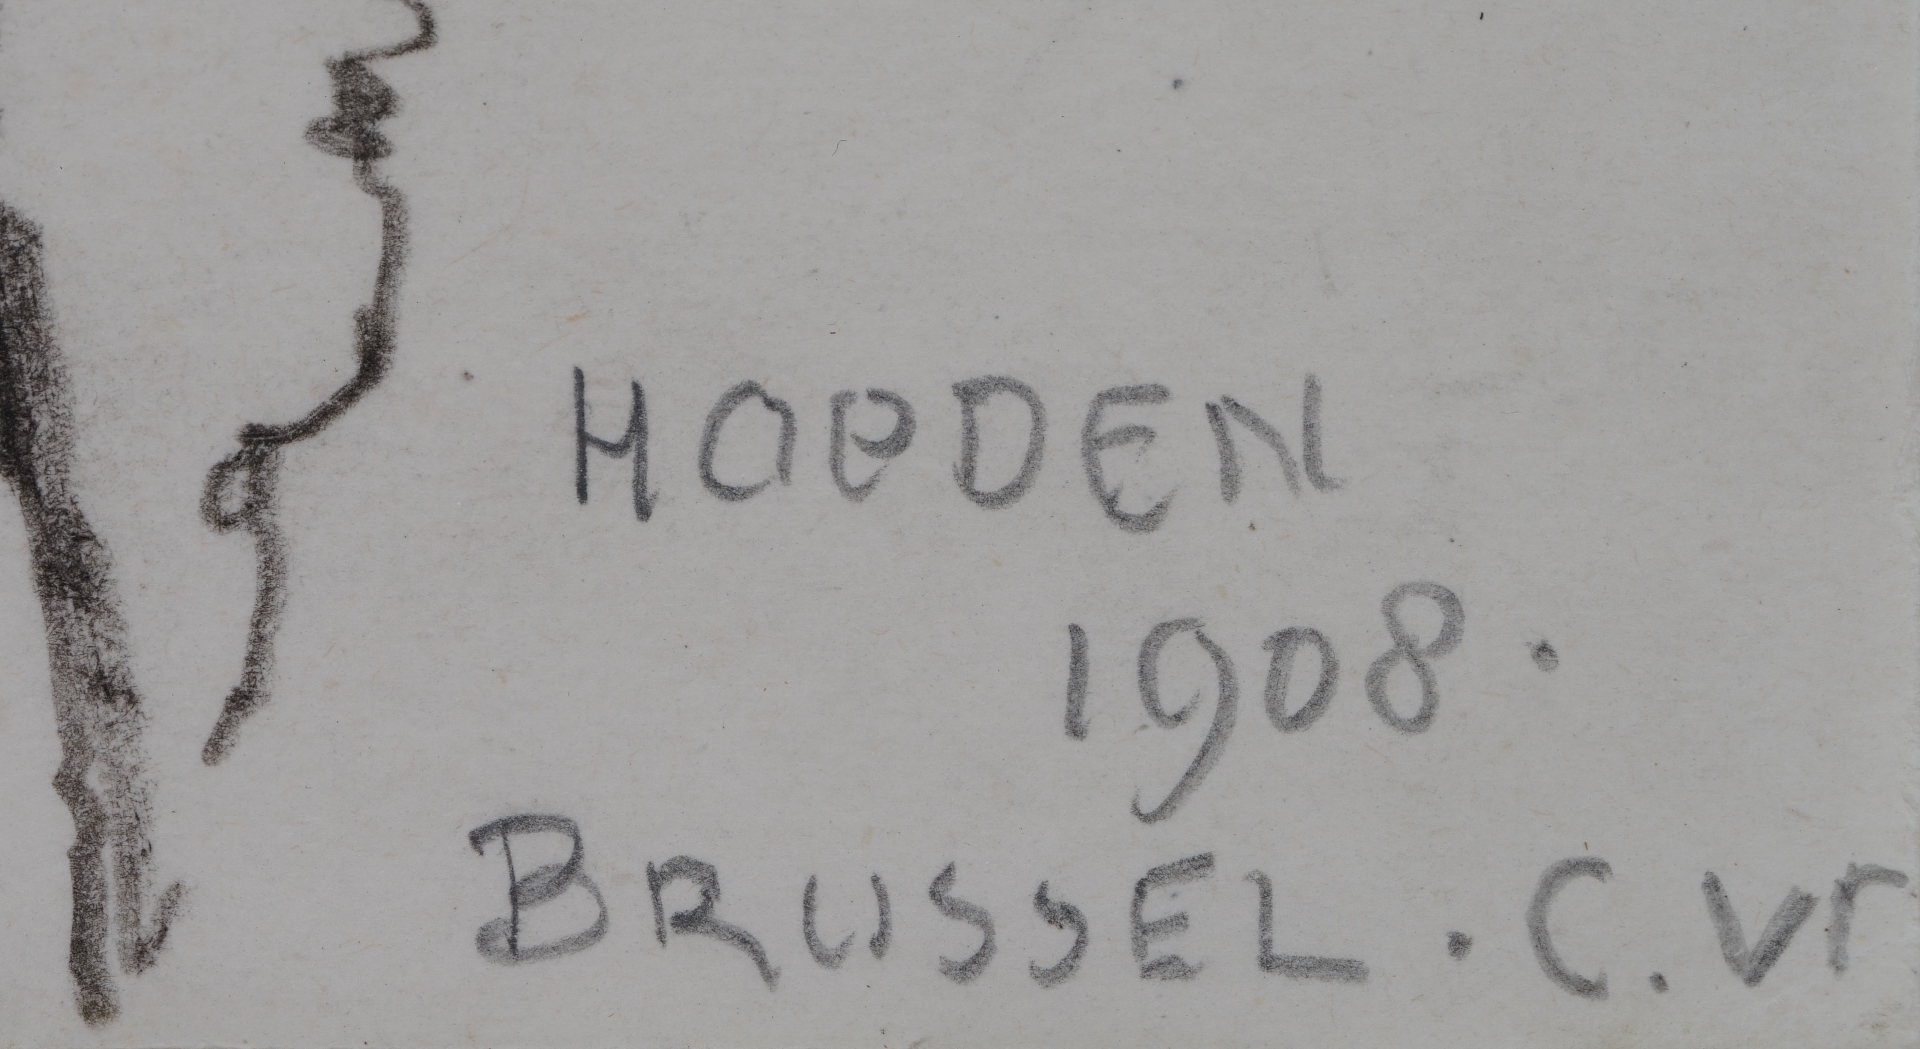 HOeDEN
1908.
BRUSSEL. C. Vr